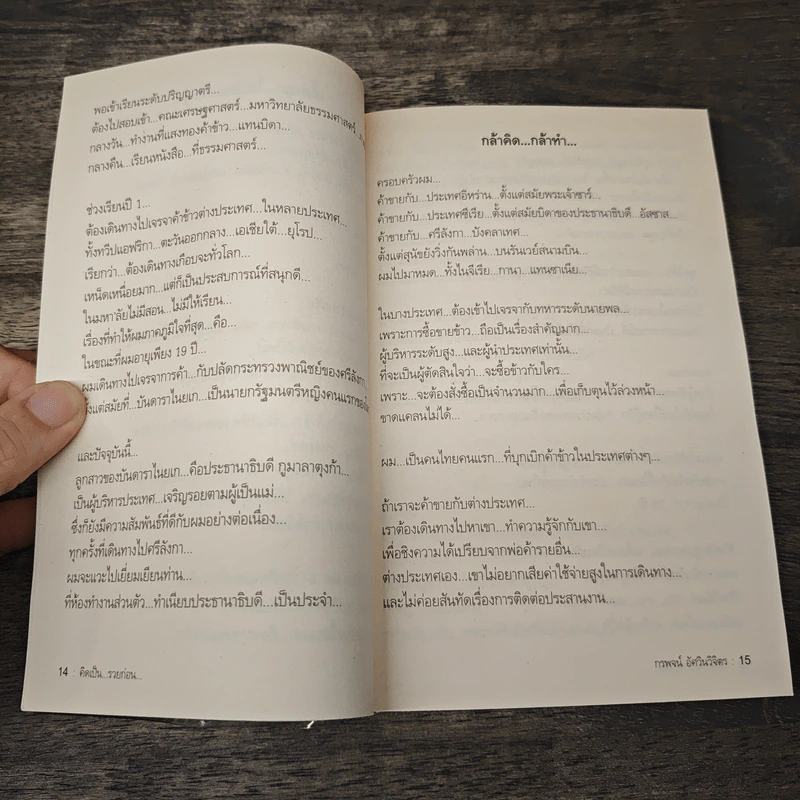 พอเข้าเรียนระดับปริญญาตรี...
ต้องไปสอบเข้า...คณะเศรษฐศาสตร์...มหาวิทยาลัยธรรมศาสตร์
กลางวัน...ทำงานที่แสงทองค้าข้าว...แทนบิดา...
กลางคืน...เรียนหนังสือ...ที่ธรรมศาสตร์...
ช่วงเรียนปี 1...
ต้องเดินทางไปเจรจาค้าข้าวต่างประเทศ...ในหลายประเทศ...
ทั้งทวีปแอฟริกา...ตะวันออกกลาง...เอเชียใต้...ยุโรป...
เรียกว่า...ต้องเดินทางเกือบจะทั่วโลก...
เหน็ดเหนื่อยมาก...แต่ก็เป็นประสบการณ์ที่สนุกดี...
ในมหา'ลัยไม่มีสอน...ไม่มีให้เรียน...
เรื่องที่ทำให้ผมภาคภูมิใจที่สุด...คือ...
ในขณะที่ผมอายุเพียง 19 ปี...
ผมเดินทางไปเจรจาการค้า...กับปลัดกระทรวงพาณิชย์ของศรีลังกา
ตั้งแต่สมัยที่...บันดาราไนยเก...เป็นนายกรัฐมนตรีหญิงคนแรกของ
และปัจจุบันนี้...
ลูกสาวของบันดาราไนยเก...คือประธานาธิบดี กูมาลาตุงก้า...
เป็นผู้บริหารประเทศ...เจริญรอยตามผู้เป็นแม่...
ซึ่งก็ยังมีความสัมพันธ์ที่ดีกับผมอย่างต่อเนื่อง...
ทุกครั้งที่เดินทางไปศรีลังกา...
ผมจะแวะไปเยี่ยมเยียนท่าน...
ที่ห้องทำงานส่วนตัว...ทำเนียบประธานาธิบดี...เป็นประจำ...
14 : คิดเป็น...รวยก่อน...
กล้าคิด...กล้าทำ...
ครอบครัวผม...
ค้าขายกับ...ประเทศอิหร่าน...ตั้งแต่สมัยพระเจ้าซาร์...
ค้าขายกับ...ประเทศซีเรีย...ตั้งแต่สมัยบิดาของประธานาธิบดี...อัสซาส...
ค้าขายกับ...ศรีลังกา...บังคลาเทศ...
ตั้งแต่สุนัขยังวิ่งกันพล่าน...บนรันเวย์สนามบิน...
ผมไปมาหมด...ทั้งไนจีเรีย...กานา...แทนซาเนีย...
ในบางประเทศ...ต้องเข้าไปเจรจากับทหารระดับนายพล...
เพราะการซื้อขายข้าว...ถือเป็นเรื่องสำคัญมาก...
ผู้บริหารระดับสูง...และผู้นำประเทศเท่านั้น...
ที่จะเป็นผู้ตัดสินใจว่า...จะซื้อข้าวกับใคร...
เพราะ...จะต้องสั่งซื้อเป็นจำนวนมาก...เพื่อเก็บตุนไว้ล่วงหน้า...
ขาดแคลนไม่ได้...
ผม...เป็นคนไทยคนแรก...ที่บุกเบิกค้าข้าวในประเทศต่างๆ...
ถ้าเราจะค้าขายกับต่างประเทศ...
เราต้องเดินทางไปหาเขา...ทำความรู้จักกับเขา...
เพื่อชิงความได้เปรียบจากพ่อค้ารายอื่น...
ต่างประเทศเอง...เขาไม่อยากเสียค่าใช้จ่ายสูงในการเดินทาง...
และไม่ค่อยสันทัดเรื่องการติดต่อประสานงาน...
กรพจน์ อัศวินวิจิตร : 15